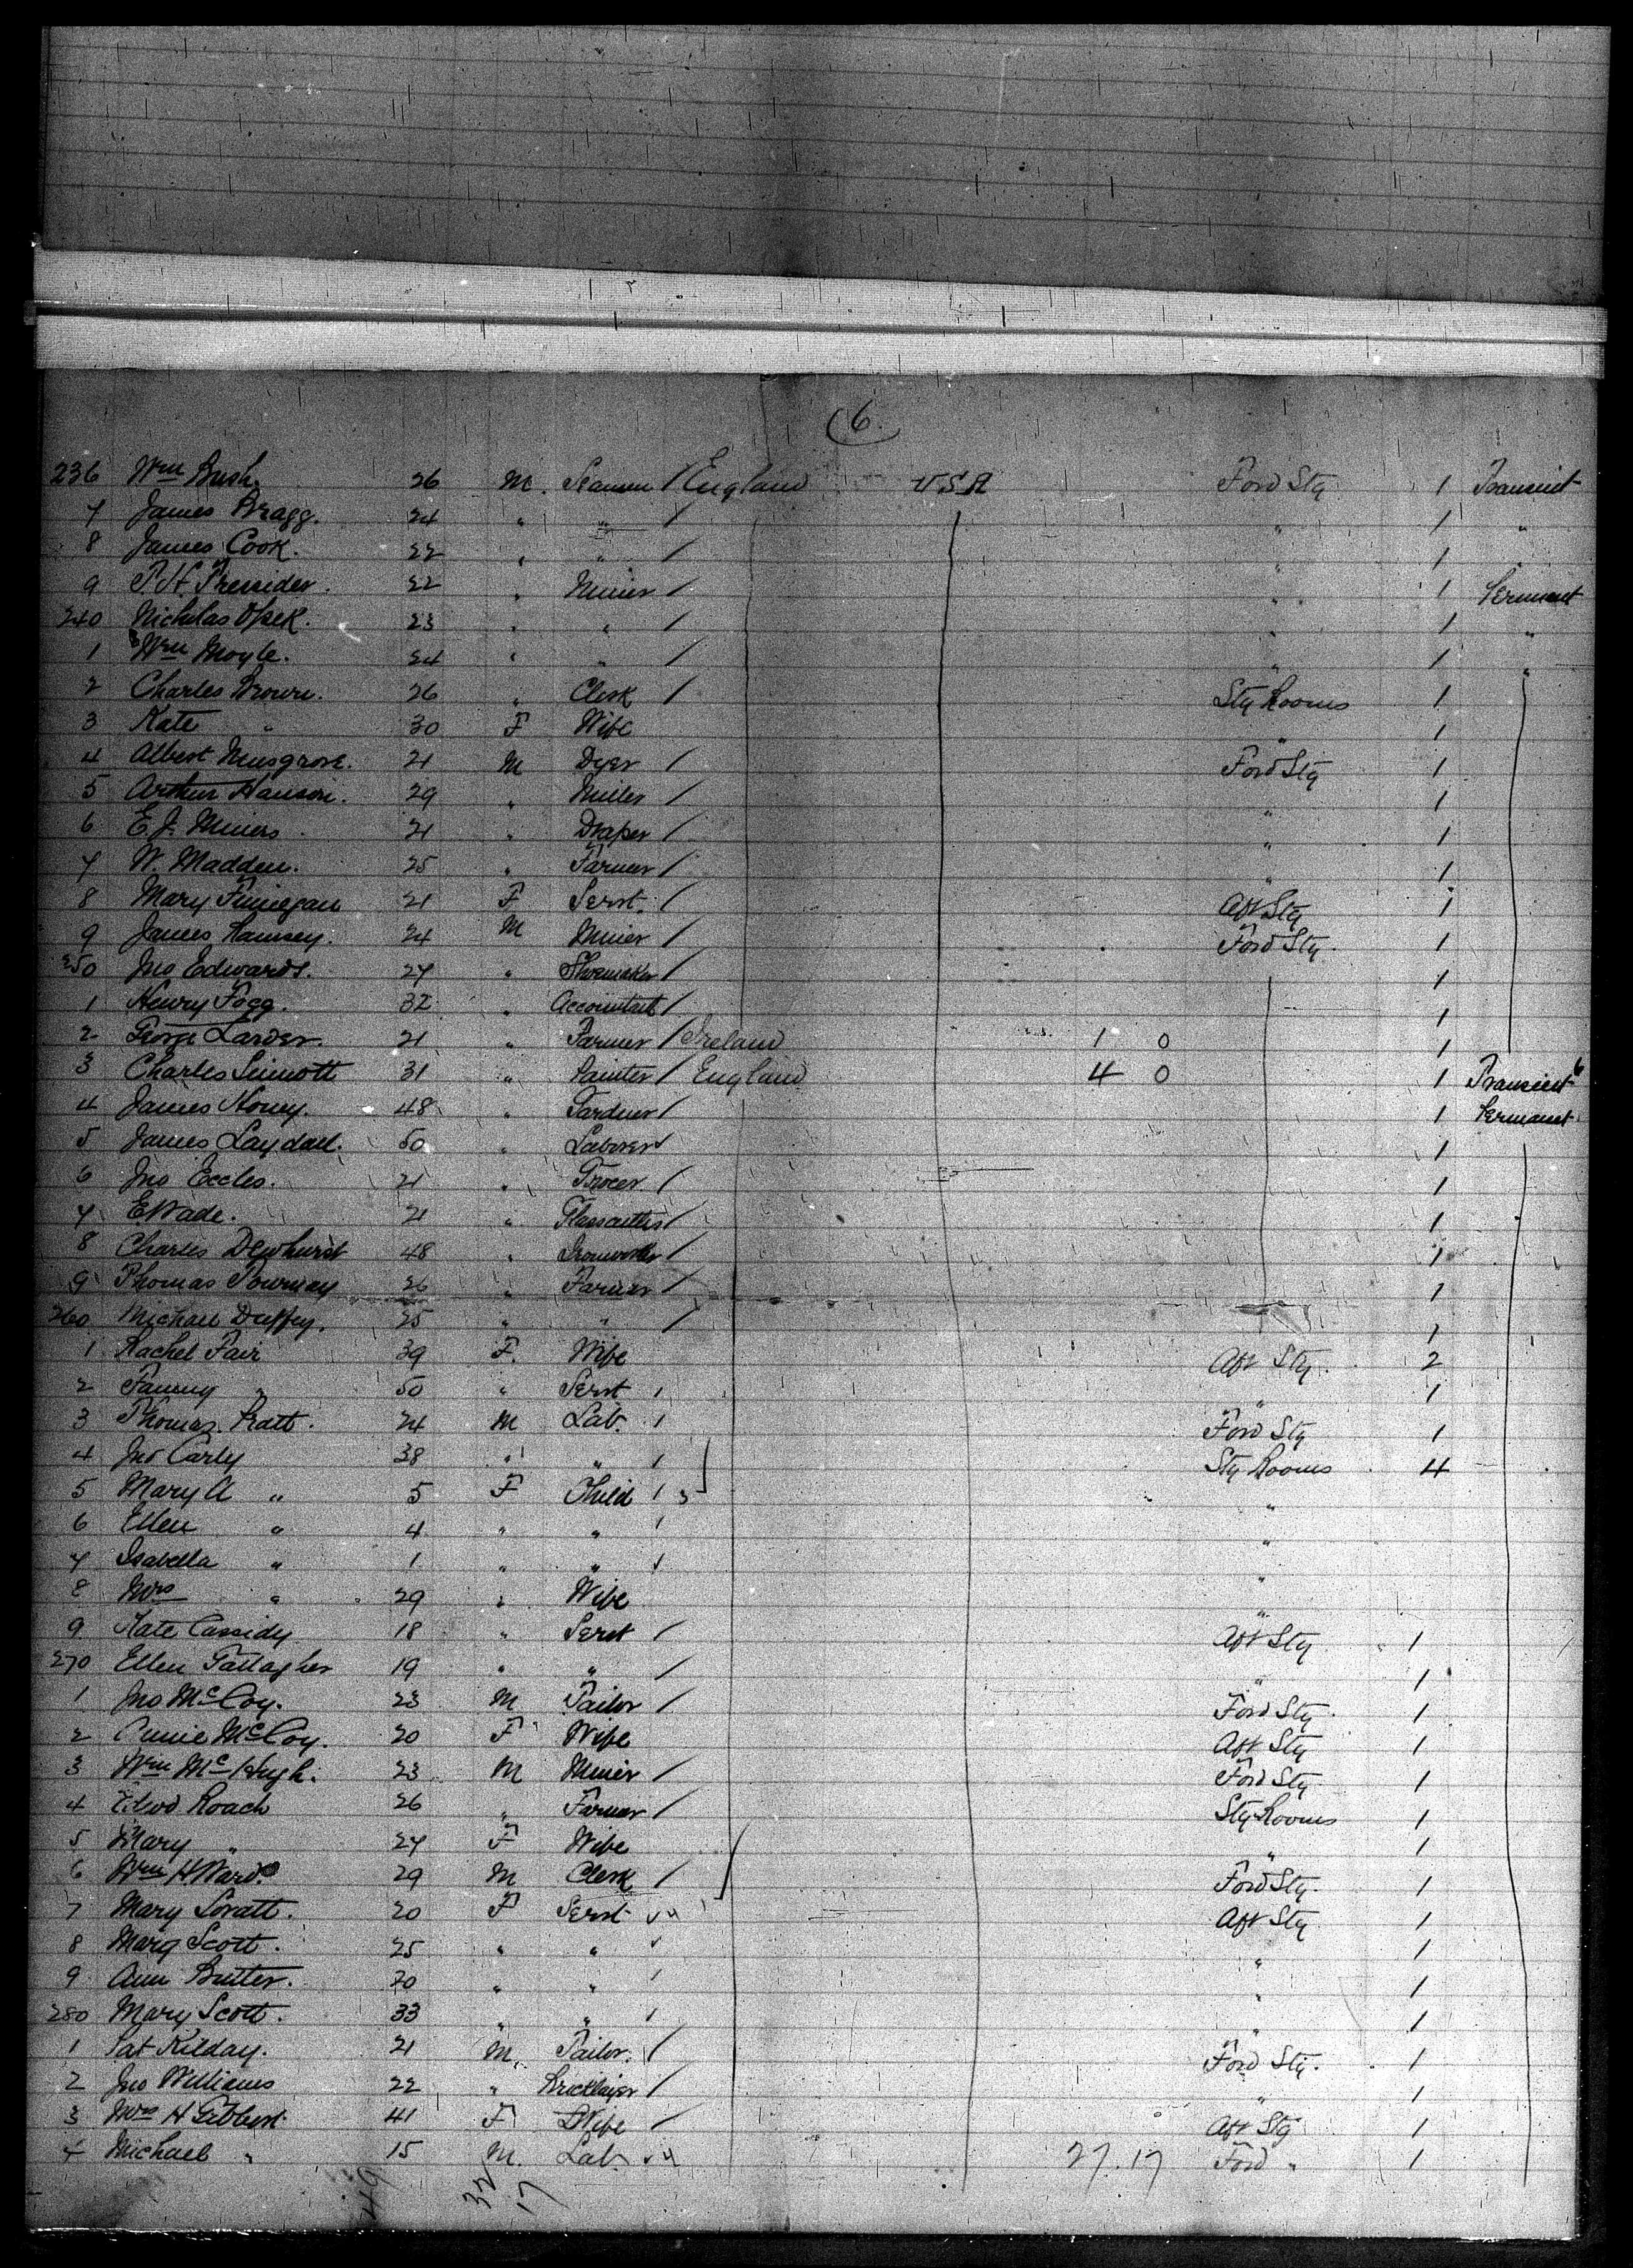 (6.
236 Wm Bush. 26 M. Seaman / England USA Ford Stg 1 Transient
7 James Bragg. 24 " " / " 1 "
8 James Cook. 22 " " / " 1 "
9 P. H. 22 " Miner / " 1 Permanent
240 Nicholas Opek. 23 " " / " 1 "
1 Wm Moyle. 24 " " / " 1 "
2 Charles Brown. 26 " Clerk / Stg Rooms 1
3 Kate " 30 F Wife " 1
4 Albert Musgrove. 21 M Dyer / Ford Stg 1
5 Arthur Hanson. 29 " Miller / " 1
6 E. J. Miners 21 " Draper / " 1
7 W. Madden. 25 " Farmer / " 1
8 Mary Finnegan 21 F Servt. / Aft Stg 1
9 James Ramsey. 24 M Miner / Ford Stg. 1
250 Jno Edwards. 27 " Shoemaker / 1
1 Henry Fogg. 32 " Accountant / 1
2 George Larder. 21 " Farmer / Ireland 1 0 1
3 Charles Sinnott 31 " Painter / England 4 0 1 Transient
4 James Honey. 48 " Gardner / 1 Permanent
5 James Laydall. 50 " Laborer / 1
6 Jno Eccles. 21 " Grocer / 1
7 E Wade. 21 " Glasscutter / 1
8 Charles Dewhurst 48 " Ironworker / 1
9 Thomas Pownay 26 " Farmer / 1
260 Michael Duffey. 25 " " / 1
1 Rachel Fair 39 F. Wife Aft Stg. 2
2 Fanny " 50 " Servt / " 1
3 Thomas Pratt. 24 M Lab. / Ford Stg 1
4 Jno Carly 38 " " / Stg Rooms 4
5 Mary A " 5 F Child / 3 "
6 Ellen " 4 " " / "
7 Isabella " 1 " " / "
8 Mrs " 29 " Wife "
9 Kate Cassidy 18 " Servt / Aft Stg 1
270 Ellen Gallagher 19 " " / " 1
1 Jno McCoy. 23 M Tailor / Ford Stg. 1
2 Annie McCoy. 20 F Wife Aft Stg 1
3 Wm McHugh. 23 M Miner / Ford Stg 1
4 Roach 26 " Farmer / Stg Rooms 1
5 Mary " 27 F Wife " 1
6 Wm H. Ward. 29 M Clerk / Ford Stg 1
7 Mary Lovatt. 20 F Servt 4 Aft Stg 1
8 Marg Scott. 25 " " / " 1
9 Ann Butler. 20 " " / " 1
280 Mary Scott. 33 " " / " 1
1 Pat Kilday. 21 M. Tailor. / Ford Stg. 1
2 Jno Williams 22 " Bricklayer / " 1
3 Mrs H Gibbert 41 F Wife / Aft Stg 1
4 Michael " 15 M. Lab. 4 27.17 Ford " 1
49 32 17